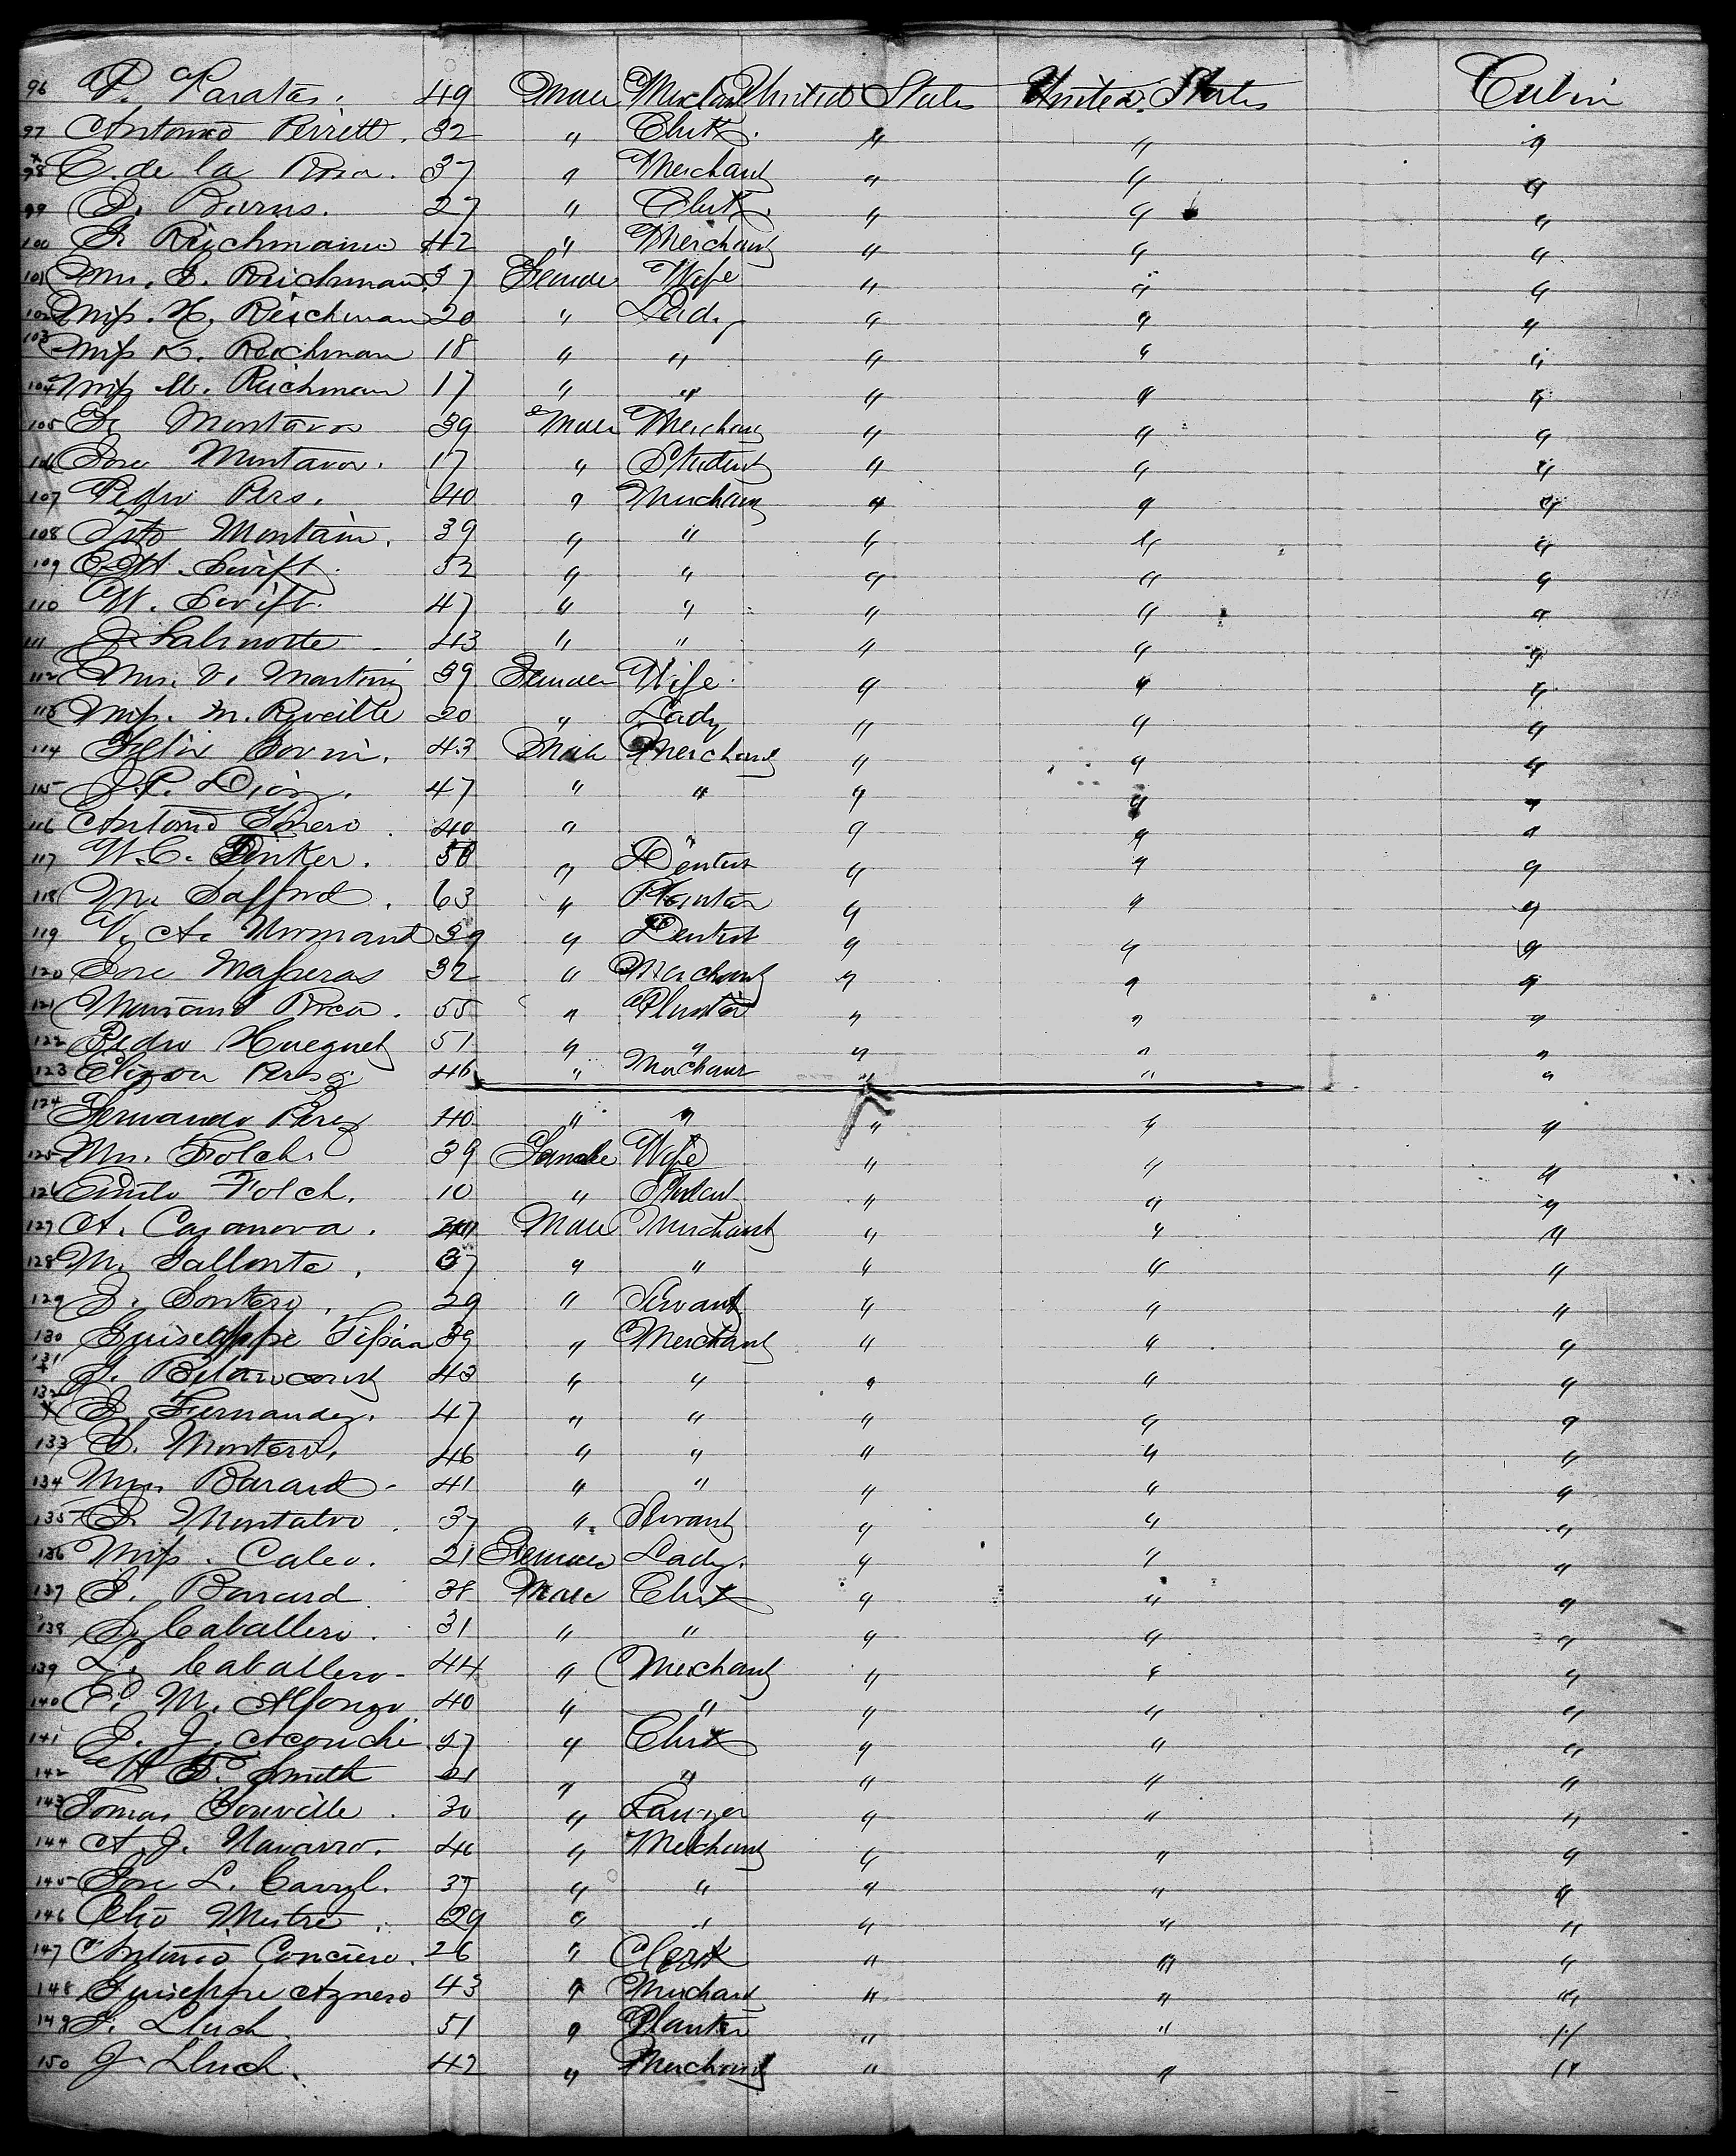 96 P. Paratas. 49 Male Merchant United States United States Cabin
97 Antonio Perrett. 32 " Clerk. " " "
98 C. de la Rosa. 37 " Merchant " " "
99 J. Burns. 27 " Clerk. " " "
100 F. Reichmann 42 " Merchant " " "
101 Mrs. F. Reichman. 37 Female Wife " " "
102 Miss. H. Reichman 20 " Lady " " "
103 Miss K. Reichman 18 " " " " "
104 Miss M. Reichman 17 " " " " "
105 F. Montavo 39 Male Merchant " " "
106 Jose Montavo. 17 " Student " " "
107 Pedro Pers. 40 " Merchant " " "
108 Tito Montain. 39 " " " " "
109 Swift. 32 " " " " "
110 W. Swift. 47 " " " " "
111 J. 43 " " " " "
112 Mrs. V. Martiny 39 Female Wife. " " "
113 Miss. M. Reveille 20 " Lady " " "
114 Felix Govin. 43 Male Merchant " " "
115 J. P. Diaz. 47 " " " " "
116 Antonio 40 " " " " "
117 W. C. Dinker. 50 " Dentist " " "
118 M. Safford. 63 " Planter " " "
119 V. A. Normand 39 " Dentist " " "
120 Jose Masperas 32 " Merchant " " "
121 Mariano Roca. 55 " Planter " " "
122 Pedro Huguet 51 " " " " "
123 Perez 46 " Merchant " " "
124 Fernando Perez 40 " " " " "
125 Mrs. Folch. 39 Female Wife " " "
126 Emilo Folch. 10 " Student " " "
127 A. Cazanova. Male Merchant " " "
128 M. Sallonte. 37 " " " " "
129 J. Sontero. 29 " Servant " " "
130 Guiseppe 39 " Merchant " " "
131 J. Betancourt 43 " " " " "
132 J. Fernandez. 47 " " " " "
133 Y. Montero. 46 " " " " "
134 Barard - 41 " " " " "
135 J. Montalvo. 37 " Servant " " "
136 Miss. Caleo. 21 Female Lady. " " "
137 J. Barard 38 Male Clerk " " "
138 S. Caballero. 31 " " " " "
139 L. Caballero - 44 " Merchant " " "
140 P. M. Alfonzo 40 " " " " "
141 J. J. 27 " Clerk " " "
142 Smith 21 " " " " "
143 Tomas Bouville. 30 " Lawyer " " "
144 A. J. Navarro. 46 " Merchant " " "
145 Jose L. Carryl. 37 " " " " "
146 Mestre. 29 " " " " "
147 Antonio Canciero. 26 " Clerk " " "
148 Guiseppe Agnero 43 " Merchant " " "
149 F. Lluch 51 " Planter " " "
150 J. Lluch. 42 " Merchant " " "